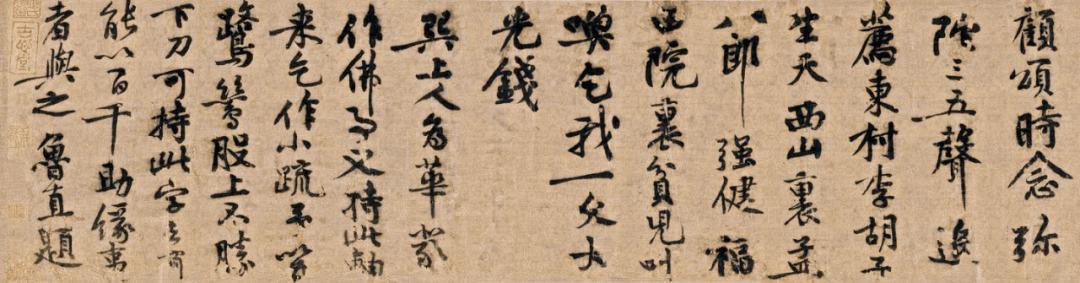 顧頌時念弥
陁三五聲遥
薦東村李胡子
生天西山裏孟
八郎强健福
田院裏貧兒叫
喚乞我一文大
光錢
巽上人為華嚴
作佛事又持此軸
来乞作小疏不啻
鷺鷥股上不勝
下刀可持此字去有
能以百千助緣事
者與之魯直題